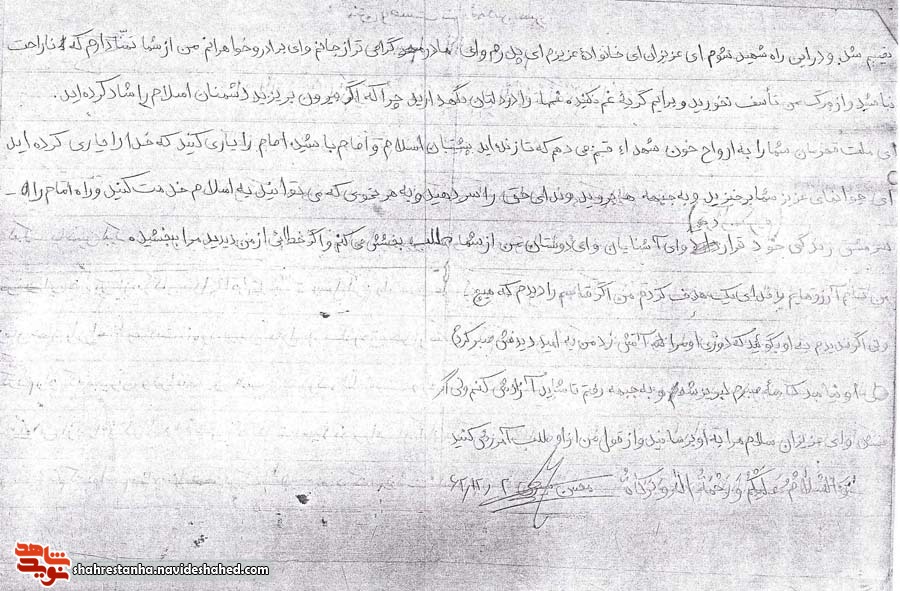 نصیبم شد و در این راه شهید شوم ای عزیزان ای خانواده عزیزم ای پدرم وای مادر گرامی تر از جانم وای برادر و خواهرانم من از شما تمنّا دارم که ناراحت
نباشید و از مرگ من تأسف نخورید و برایم گریه غم نکنید غمها را در دلتان نگهدارید چرا که اگر بیرون بریزید دشمنان اسلام را شاد کرده اید.
ای ملت قهرمان شما را به ارواح خون شهداء قسم می دهم که تا زنده اید پشتیبان اسلام و امام باشید، امام را یاری کنید که خدا را یاری کرده اید
ای جوانهای عزیز شما برخیزید و به جبهه ها بروید وندای حق را سر دهید و به هر نحوی که می توانید به اسلام خدمت کنید و راه امام را
سرمشق زندگی خود قرار دهید وای آشنایان وای دوستان من از شما طلب بخشش می کنم و اگر خطائی از من دیدید مرا ببخشید
من تمام آرزوهایم را فدای یک هدف کردم من اگر قاسم را دیدم که هیچ
ولی اگر ندیدم به او بگوئید که دوری او مرا آتش زد من به امید دیدنش صبر کردم
ولی او نیامد کاسه صبرم لبریز شد و به جبهه رفتم تا شاید آزادش کنم ولی اگر
ای عزیزان سلام مرا به او برسانید و از قول من از او طلب آمرزش کنید
والسَّلامُ عَلَیْکُمْ وَ رَحْمَةُ اللهِ وَ بَرَکاتُهُ
نوید شاهد
shahrestanha.navideshahed.com